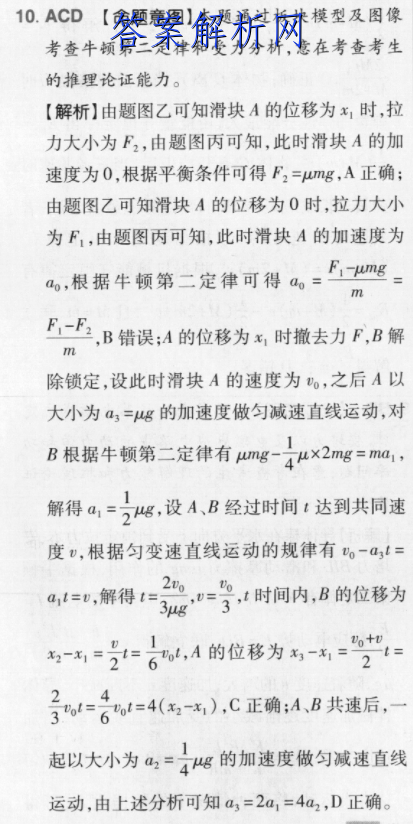 10. ACD 【命题意图】本题通过板块模型及图像
考查牛顿第二定律和受力分析,意在考查考生
的推理论证能力。
答案解析网
【解析】由题图乙可知滑块 A 的位移为 x₁ 时,拉
力大小为 F₂,由题图丙可知,此时滑块 A 的加
速度为0,根据平衡条件可得 F₂=μmg,A 正确;
由题图乙可知滑块 A 的位移为 0 时,拉力大小
为 F₁,由题图丙可知,此时滑块 A 的加速度为
a₀,根据牛顿第二定律可得 a₀ = (F₁-μmg)/m =
(F₁-F₂)/m,B 错误;A 的位移为 x₁ 时撤去力 F,B 解
除锁定,设此时滑块 A 的速度为 v₀,之后 A 以
大小为 a₃=μg 的加速度做匀减速直线运动,对
B 根据牛顿第二定律有 μmg-1/4μ×2mg=ma₁,
解得 a₁=1/2μg,设 A、B 经过时间 t 达到共同速
度 v,根据匀变速直线运动的规律有 v₀-a₃t=
a₁t=v,解得 t=2v₀/3μg,v=v₀/3,t 时间内,B 的位移为
x₂-x₁=v/2t=1/6v₀t,A 的位移为 x₃-x₁=(v₀+v)/2t=
2/3v₀t=4/6v₀t=4(x₂-x₁),C 正确;A、B 共速后,一
起以大小为 a₂=1/4μg 的加速度做匀减速直线
运动,由上述分析可知 a₃=2a₁=4a₂,D 正确。